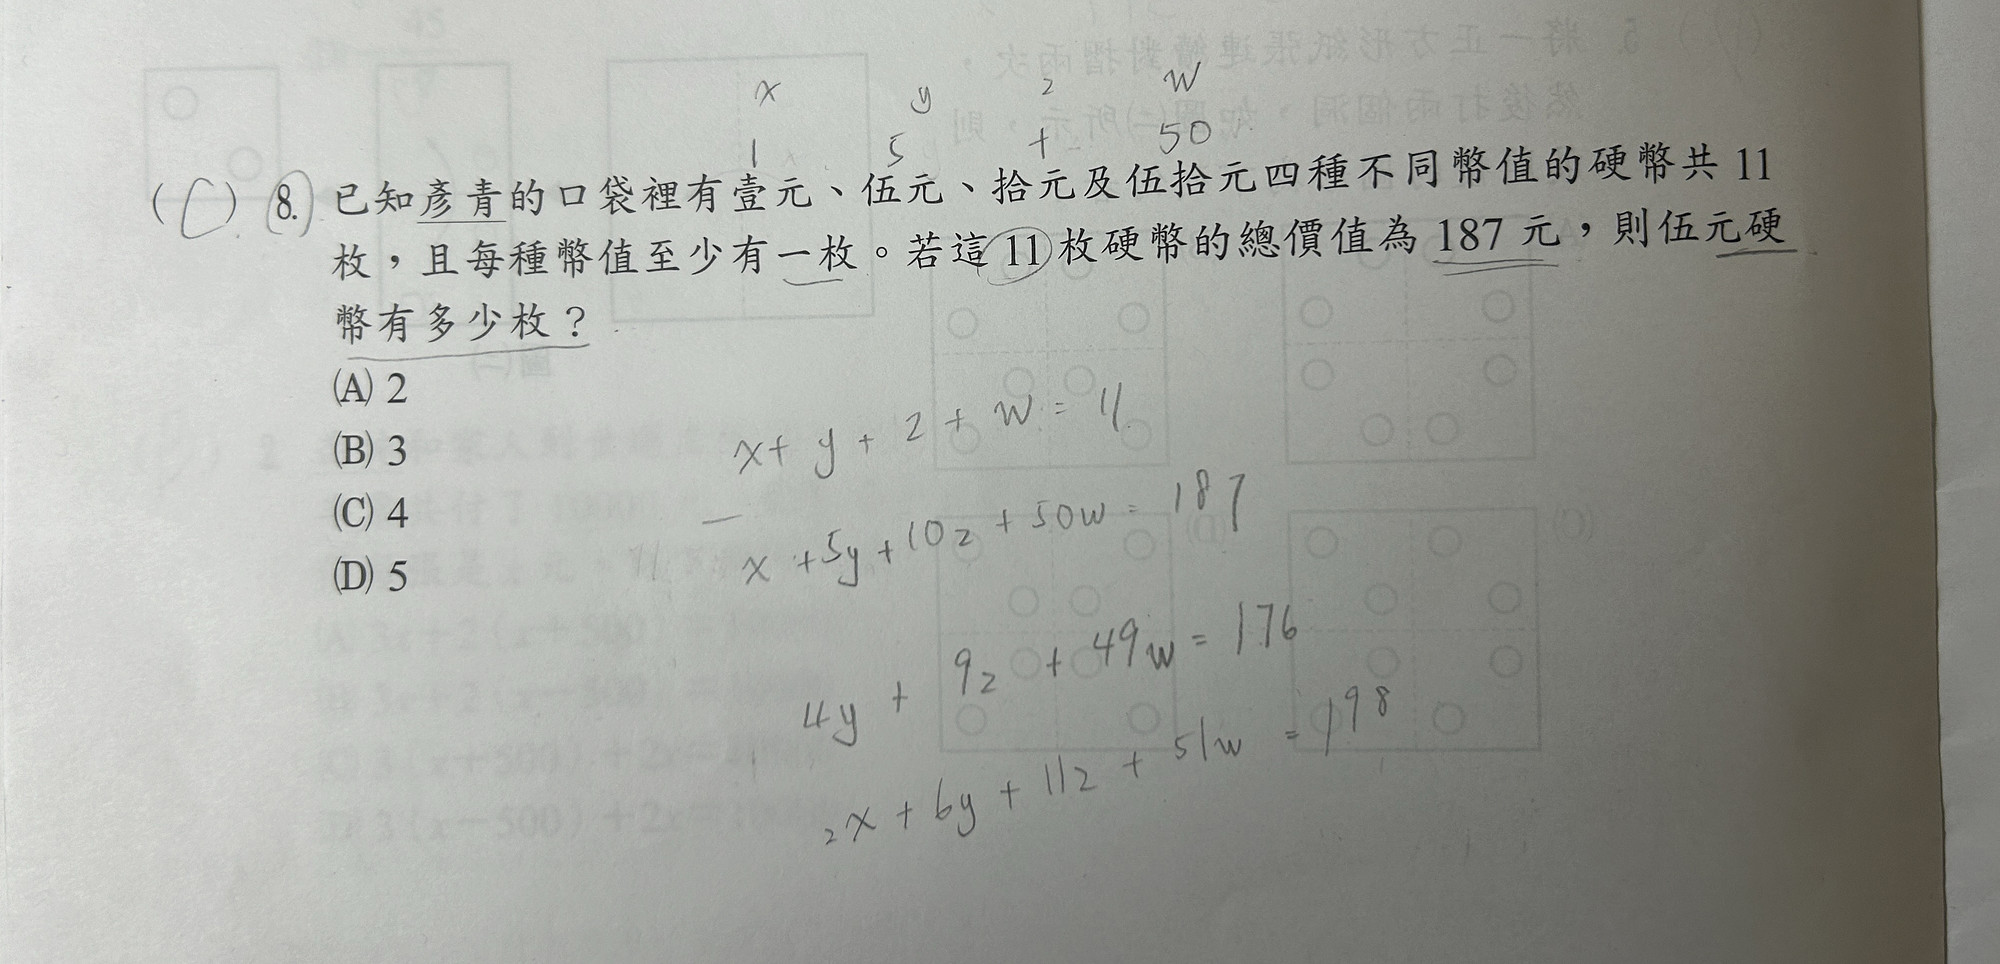 x y z w
1 5 + 50
(C) 8. 已知彥青的口袋裡有壹元、伍元、拾元及伍拾元四種不同幣值的硬幣共 11
枚，且每種幣值至少有一枚。若這 11 枚硬幣的總價值為 187 元，則伍元硬
幣有多少枚？
(A) 2
(B) 3
(C) 4
(D) 5
x + y + z + w = 11
— x + 5y + 10z + 50w = 187
4y + 9z + 49w = 176
2x + 6y + 11z + 51w = 198